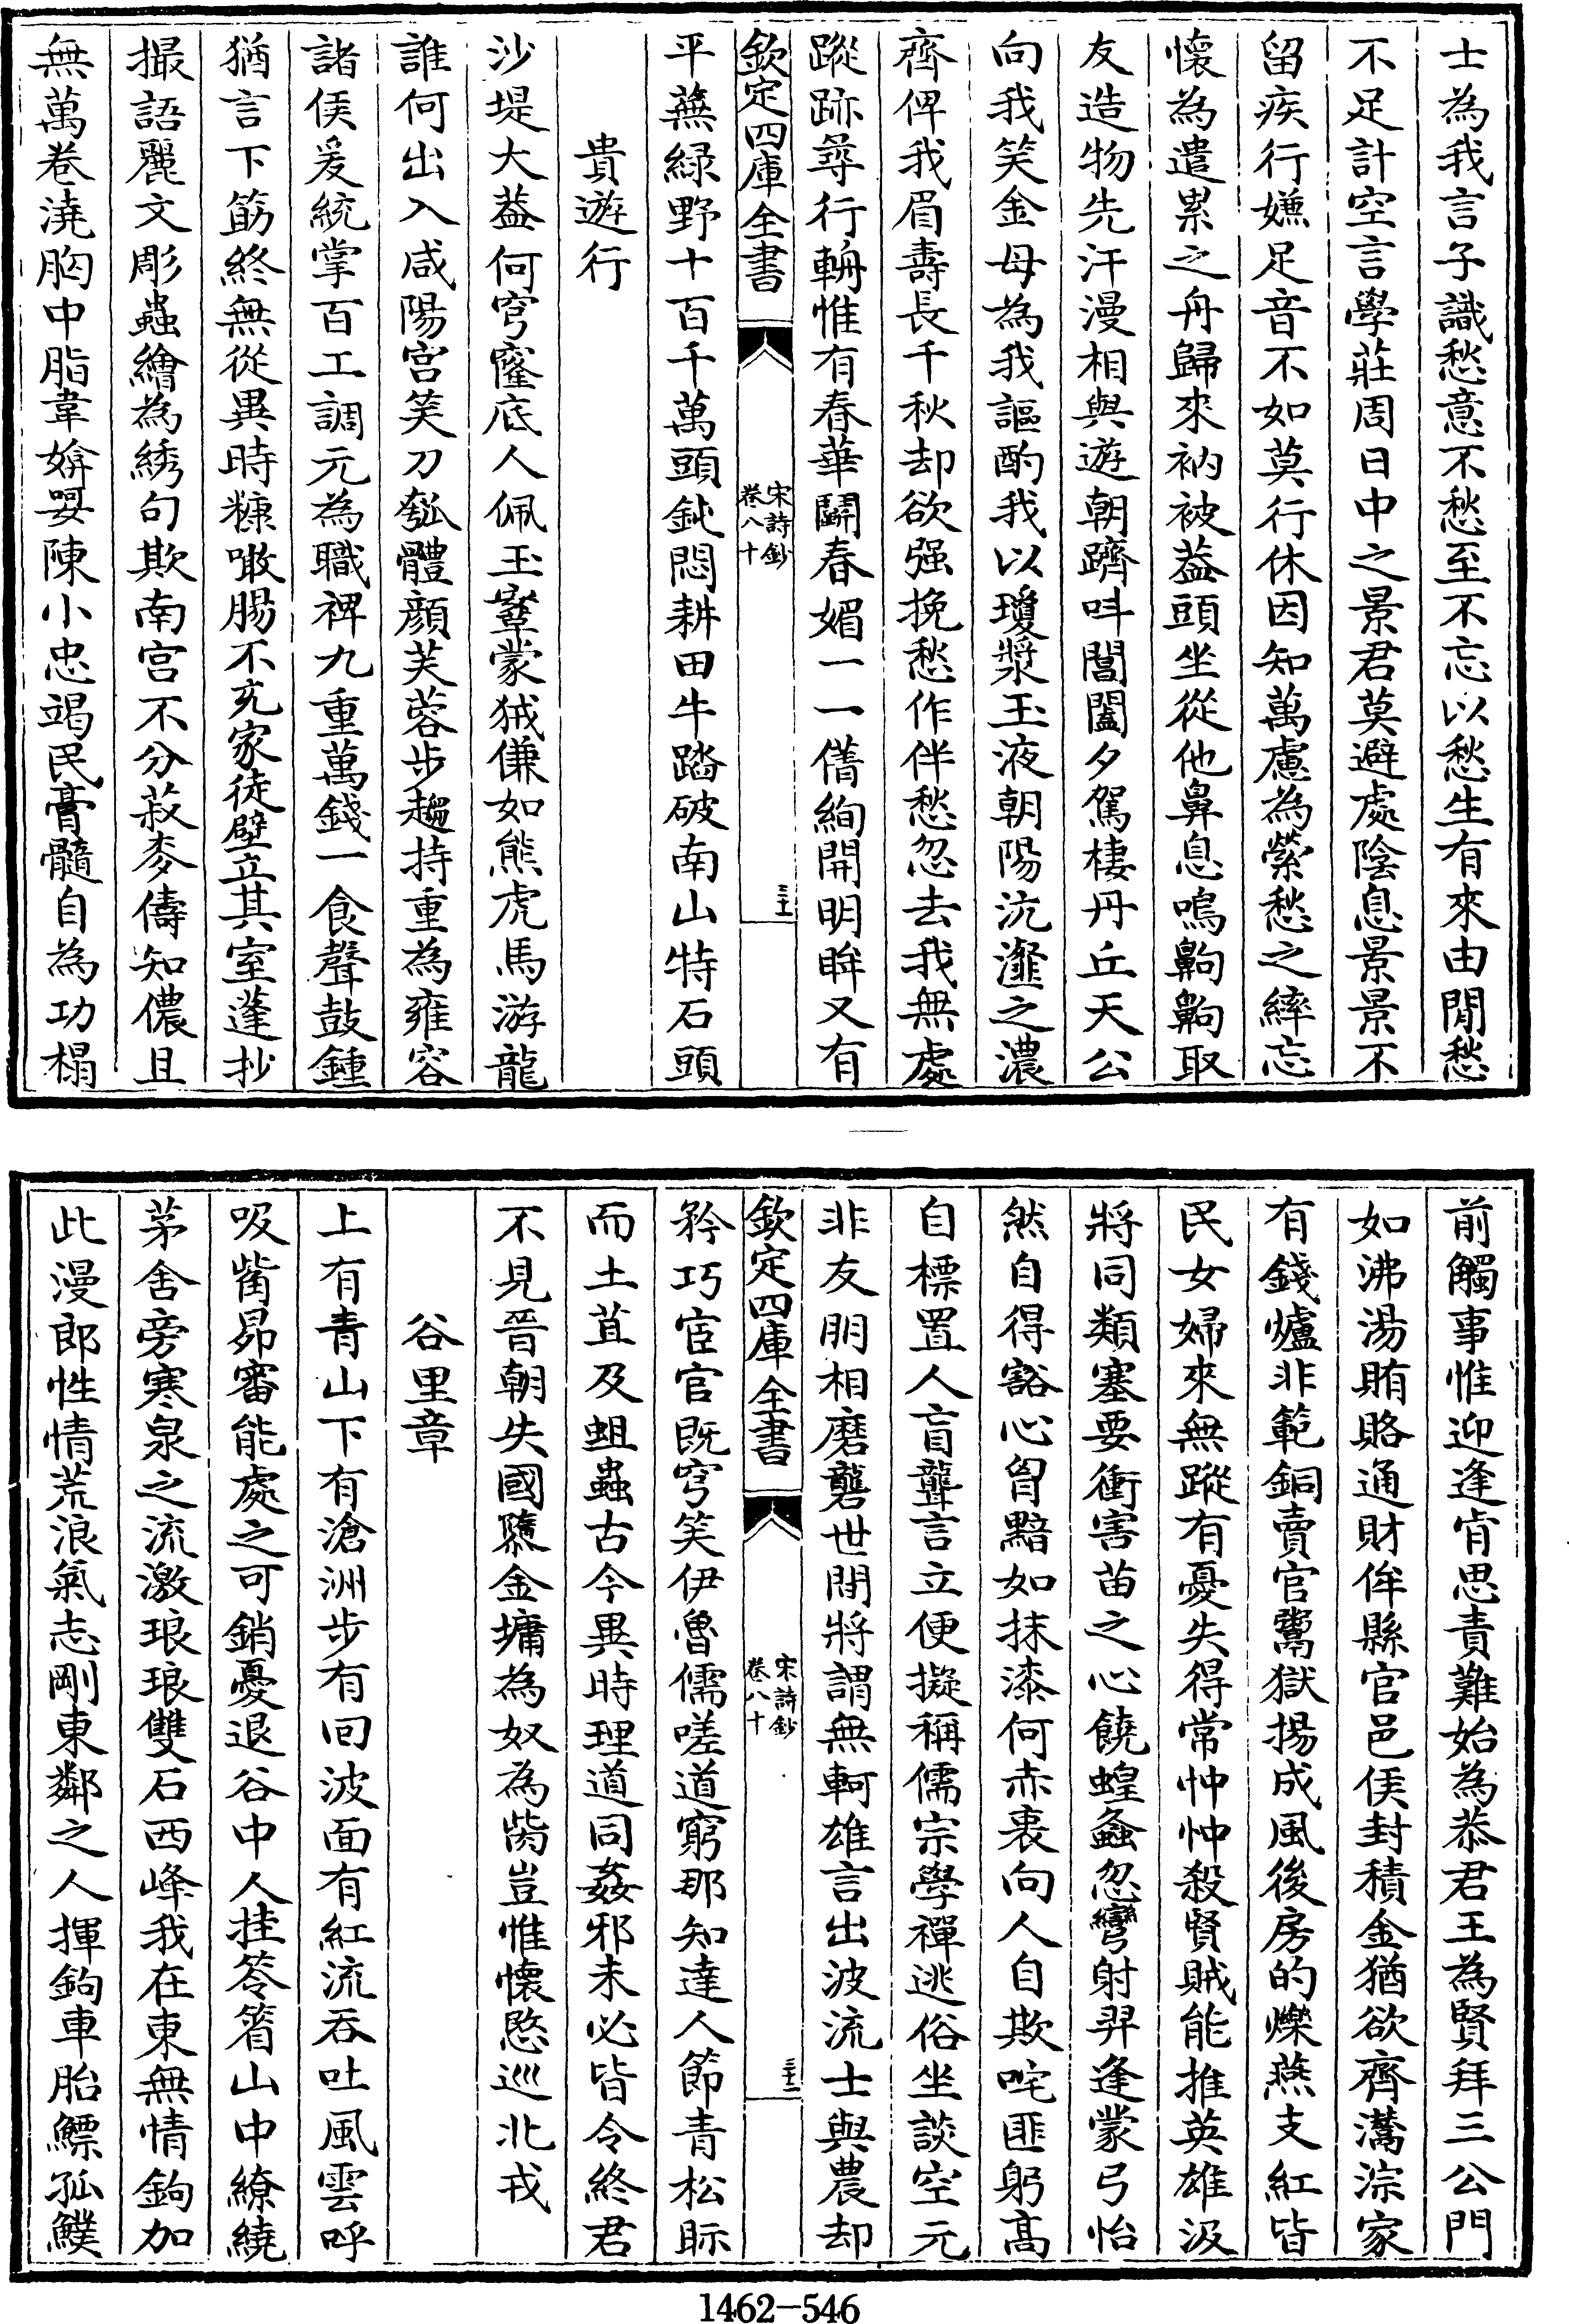 士為我言子識愁意不愁至不忘以愁生有來由閒愁
不足計空言學莊周日中之景君莫避處陰息景景不
留疾行嫌足音不如莫行休因知萬慮為縈愁之繂忘
懷為遣累之舟歸來衲被葢頭坐從他鼻息鳴齁齁取
友造物先汗漫相與遊朝躋呌閶闔夕駕棲丹丘天公
向我笑金母為我謳酌我以瓊漿玉液朝陽沆瀣之濃
齊俾我眉壽長千秋却欲强挽愁作伴愁忽去我無處
蹤跡尋行輈惟有春華鬭春媚一一僐絢開明眸又有
欽定四庫全書
宋詩鈔
卷八十
三十
平蕪綠野十百千萬頭鈍悶耕田牛踏破南山特石頭
貴遊行
沙堤大葢何穹窿底人佩玉鞶蒙狨傔如熊虎馬游龍
誰何出入咸陽宮笑刀瓠體顔芙蓉步趨持重為雍容
諸侯爰統掌百工調元為職裨九重萬錢一食聲鼓鍾
猶言下筯終無從異時糠噉腸不充家徒壁立其室蓬抄
撮語麗文彫蟲繪為綉句欺南宮不分菽麥儔知儂且
無萬卷澆胸中脂韋媕娿陳小忠竭民膏髓自為功榻
前觸事惟迎逢肯思責難始為恭君王為賢拜三公門
如沸湯賄賂通財侔縣官邑侯封積金猶欲齊灊淙家
有錢爐非範銅賣官鬻獄揚成風後房的爍燕支紅皆
民女婦來無蹤有憂失得常忡忡殺賢賊能推英雄汲
將同類塞要衝害苗之心饒蝗螽忽彎射羿逢蒙弓怡
然自得豁心胷黯如抹漆何赤衷向人自欺咤匪躬高
自標置人盲聾言立便擬稱儒宗學禪逃俗坐談空元
非友朋相磨礱世閉將謂無軻雄言出波流士與農却
欽定四庫全書
宋詩鈔
卷八十
三十一
矜巧宦官既穹笑伊魯儒嗟道窮那知達人節青松眎
而土苴及蛆蟲古今異時理道同姦邪未必皆令終君
不見晉朝失國隳金墉為奴為崗豈惟懷愍巡北戎
谷里章
上有青山下有滄洲步有回波面有紅流吞吐風雲呼
吸觜昴審能處之可銷憂退谷中人挂笭箵山中繚繞
茅舍旁寒泉之流激琅琅雙石西峰我在東無情鉤加
此漫郎性情荒浪氣志剛東鄰之人揮鉤車胎鰾孤鰈
1462-546